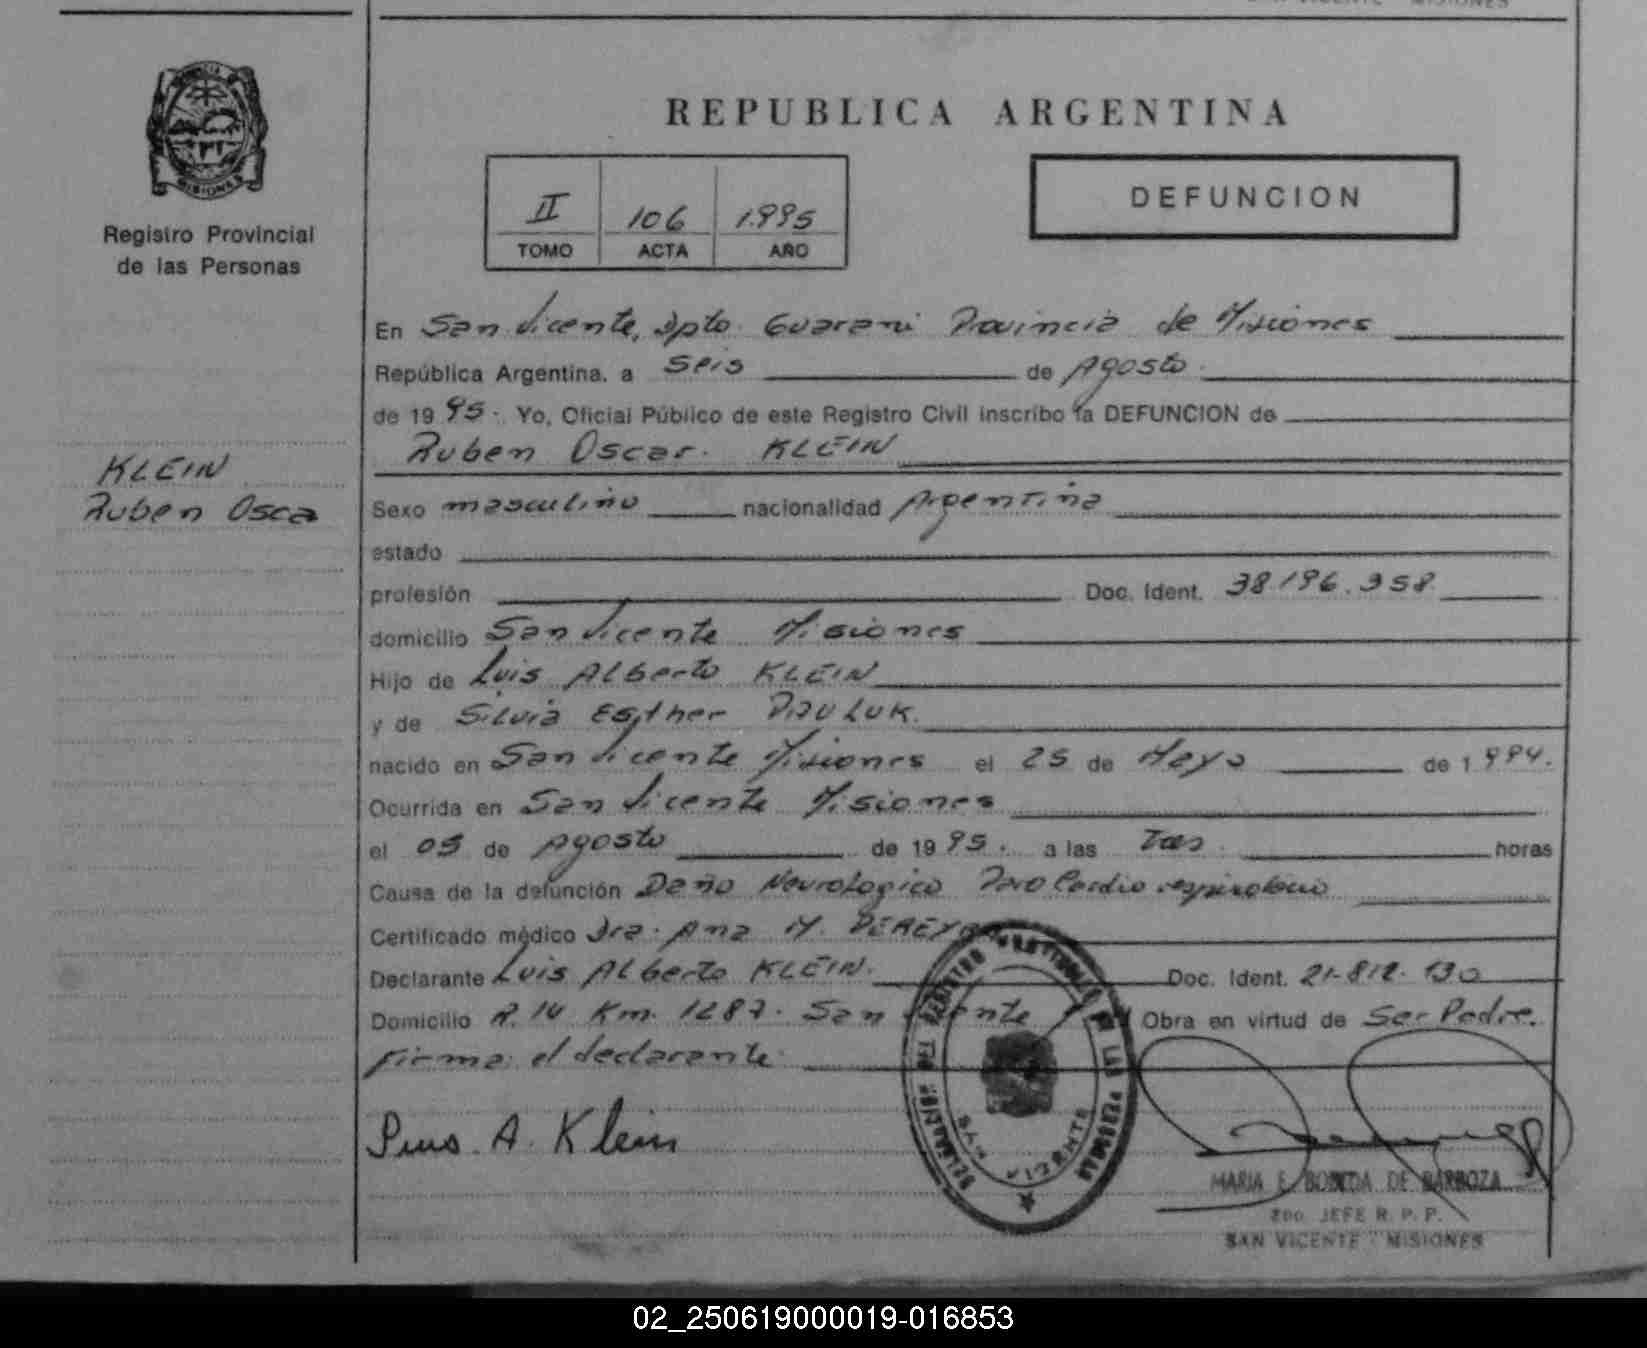 REPUBLICA ARGENTINA
MISIONES
Registro Provincial
de las Personas
II 106 1.995
TOMO ACTA AÑO
DEFUNCION
En San Vicente, Dpto. Guarani Provincia de Misiones
República Argentina, a seis de Agosto.
de 1995. Yo, Oficial Público de este Registro Civil inscribo la DEFUNCION de
Ruben Oscar. KLEIN
KLEIN
Ruben Osca
Sexo masculino nacionalidad Argentina
estado
profesión Doc. Ident. 38.196.358
domicilio San Vicente Misiones
Hijo de Luis Alberto KLEIN
y de Silvia Esther PAULUK.
nacido en San Vicente Misiones el 25 de Mayo de 1994.
Ocurrida en San Vicente Misiones
el 05 de Agosto de 1995. a las Tres. horas
Causa de la defunción Daño Neurologico Paro Cardio respiratorio
Certificado médico Dra. Ana M. PEREYRA
Declarante Luis Alberto KLEIN. Doc. Ident. 21.812.130
Domicilio R. 14 Km. 1287. San Vicente Obra en virtud de Ser Padre.
Firma: el declarante.
Luis A. Klein
DELEGACION DEL REGISTRO PROVINCIAL DE LAS PERSONAS
SAN VICENTE
MARIA E. BOBEDA DE BARBOZA
JEFE R. P. P.
SAN VICENTE - MISIONES
02_250619000019-016853